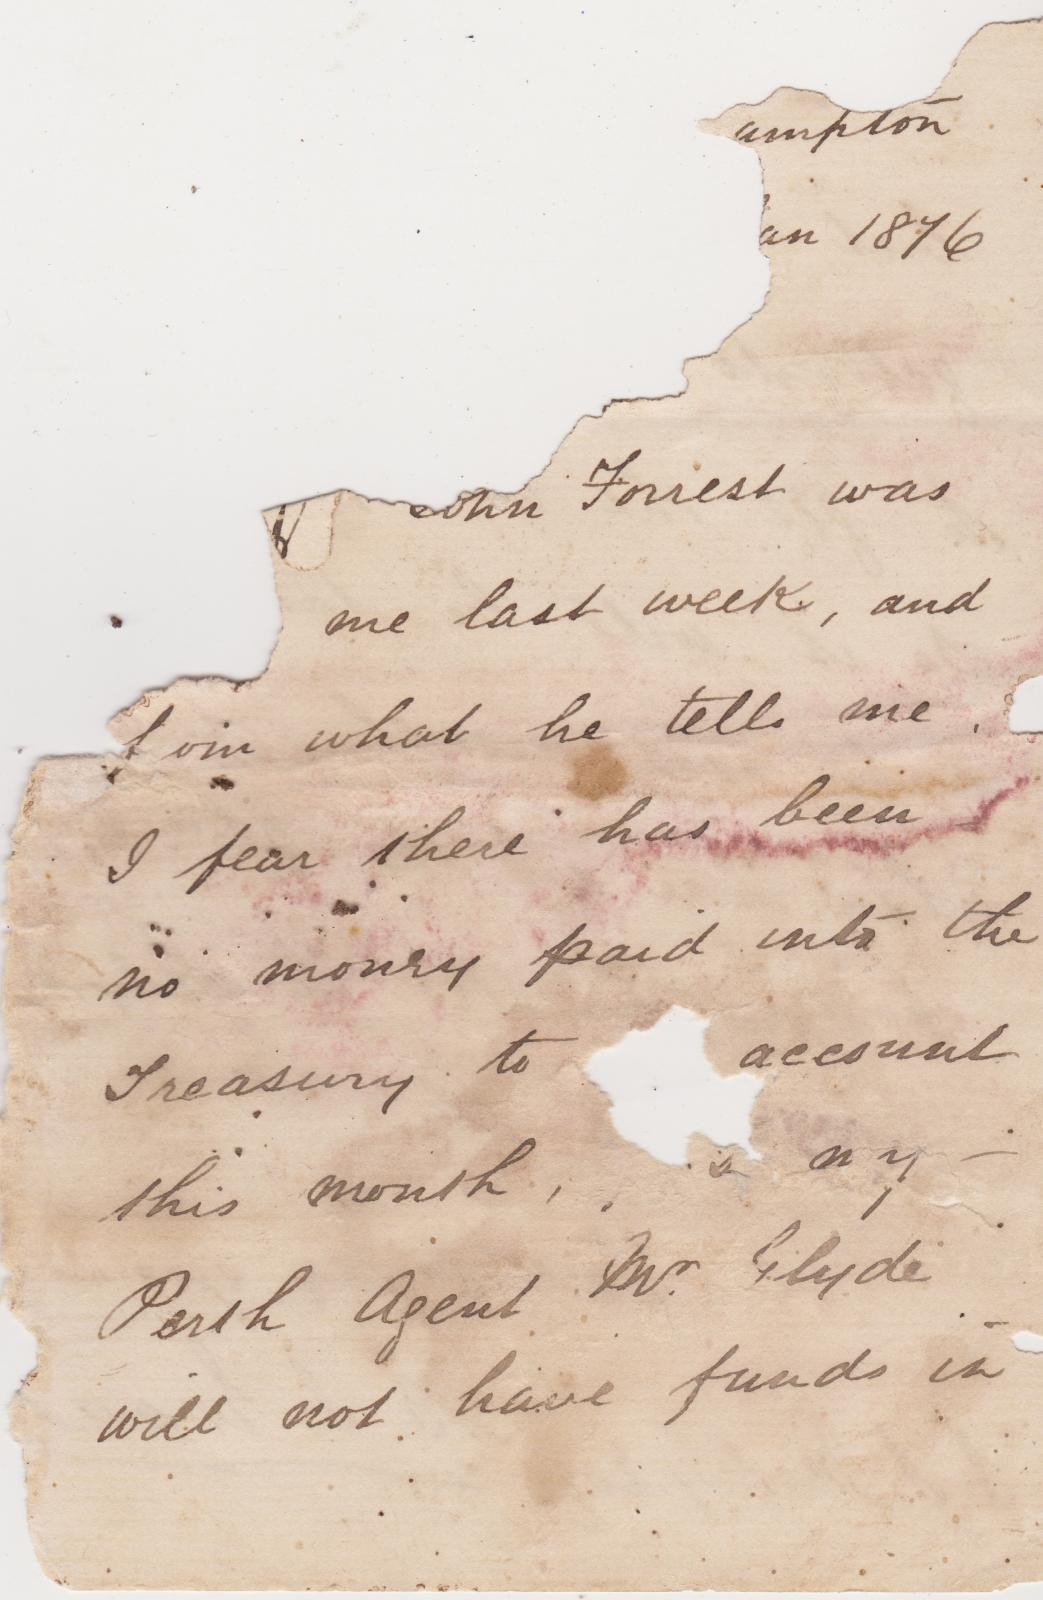 ampton
an 1876
ohn Forrest was
me last week, and
from what he tells me.
I fear there has been
no money paid into the
Treasury to account
this month, my
Perth Agent Mr. Clyde
will not have funds in